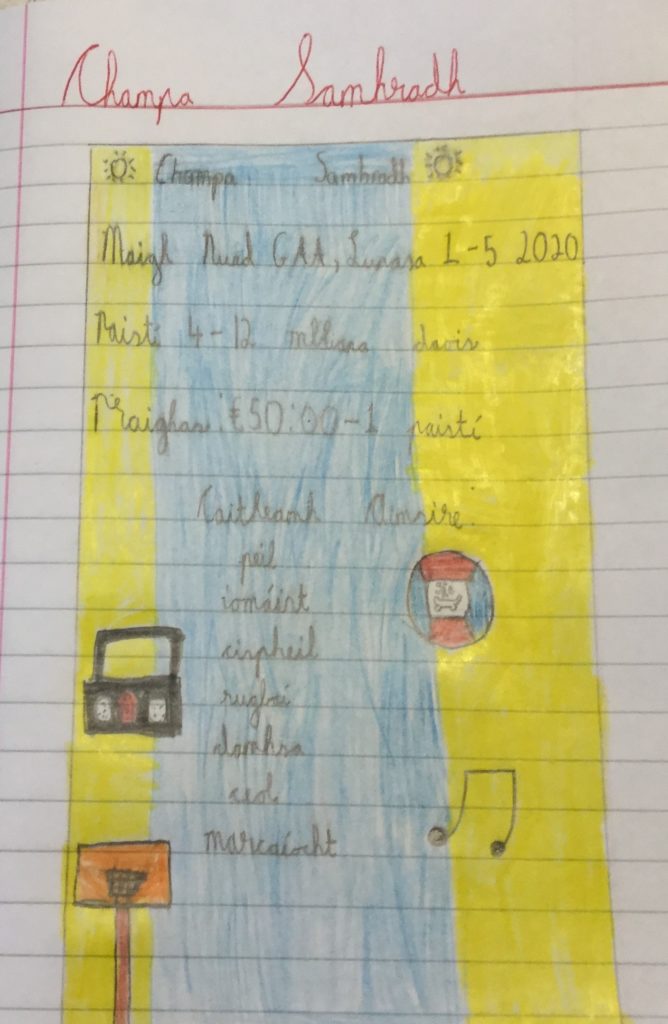 Champa Samhradh
Champa Samhradh
Maigh Nuad GAA, Lunasa 1-5 2020
Paisti 4-12 mbliana daois
Praighas: €50:00-1 paistí
Caitheamh Aimsire:
peil
iomáint
cispheil
rugbai
damhsa
ceol
marcaíocht